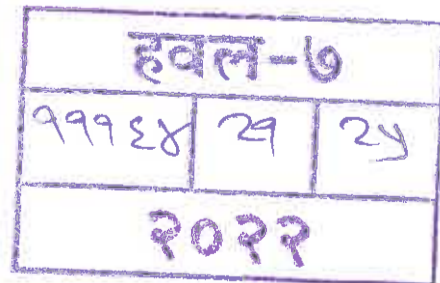 हवल-७
१११६४ २१ २५
२०२२